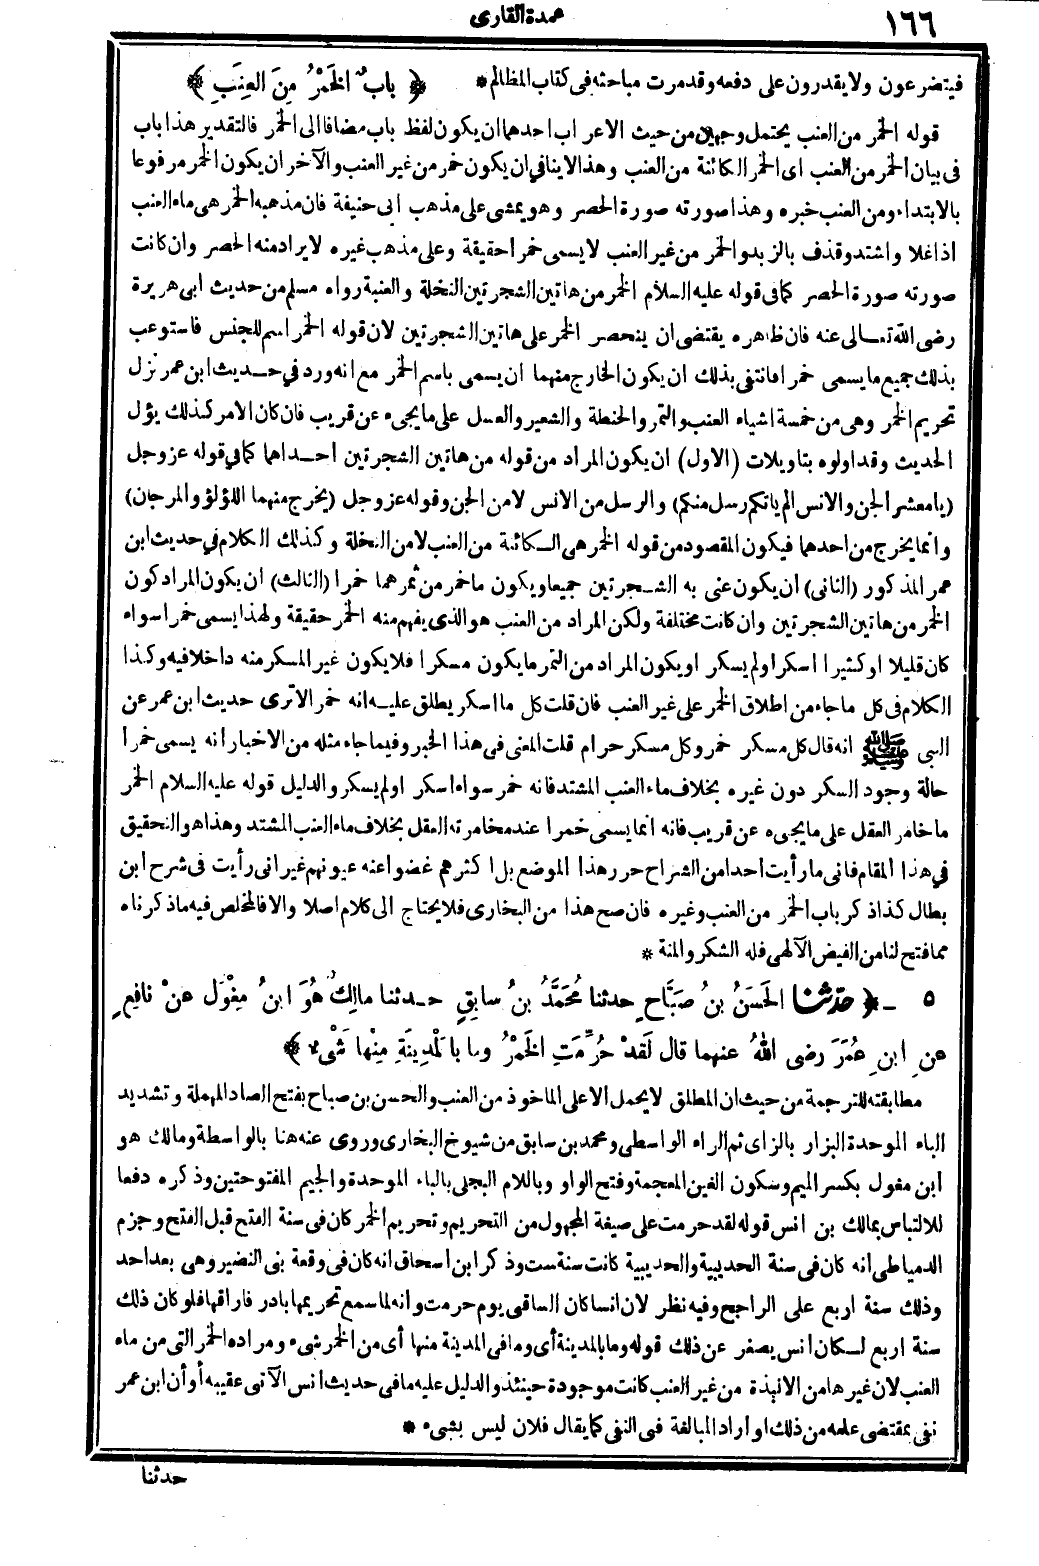 ١٦٦
عمدة القارى
فيتضرعون ولا يقدرون على دفعه وقد مرت مباحثه فى كتاب المظالم * ﴿ بابٌ الخَمْرُ مِنَ العِنَبِ ﴾
قوله الخمر من العنب يحتمل وجهين من حيث الاعراب احدهما ان يكون لفظ باب مضافا الى الخمر فالتقدير هذا باب
فى بيان الخمر من العنب اى الخمر الكائنة من العنب وهذا لا ينافي ان يكون خمر من غير العنب والآخر ان يكون الخمر مرفوعا
بالابتداء ومن العنب خبره وهذا صورته صورة الحصر وهو يمشى على مذهب ابى حنيفة فان مذهبه الخمر هى ماء العنب
اذا غلا واشتد وقذف بالزبد والخمر من غير العنب لا يسمى خمرا حقيقة وعلى مذهب غيره لا يراد منه الحصر وان كانت
صورته صورة الحصر كما فى قوله عليه السلام الخمر من هاتين الشجرتين النخلة والعنبة رواه مسلم من حديث ابى هريرة
رضى الله تعالى عنه فان ظاهره يقتضى ان ينحصر الخمر على هاتين الشجرتين لان قوله الخمر اسم للجنس فاستوعب
بذلك جميع ما يسمى خمرا فانتفى بذلك ان يكون الخارج منهما ان يسمى باسم الخمر مع انه ورد في حديث ابن عمر نزل
تحريم الخمر وهى من خمسة اشياء العنب والتمر والحنطة والشعير والعسل على ما يجىء عن قريب فان كان الامر كذلك يؤل
الحديث وقد اولوه بتاويلات (الاول) ان يكون المراد من قوله من هاتين الشجرتين احداهما كما في قوله عز وجل
(يا معشر الجن والانس الم ياتكم رسل منكم) والرسل من الانس لا من الجن وقوله عز وجل (يخرج منهما اللؤلؤ والمرجان)
وانما يخرج من احدهما فيكون المقصود من قوله الخمر هى الكائنة من العنب لا من النخلة وكذلك الكلام في حديث ابن
عمر المذكور (الثانى) ان يكون عنى به الشجرتين جميعا ويكون ما خمر من ثمرهما خمرا (الثالث) ان يكون المراد كون
الخمر من هاتين الشجرتين وان كانت مختلفة ولكن المراد من العنب هو الذى يفهم منه الخمر حقيقة ولهذا يسمى خمرا سواء
كان قليلا او كثيرا اسكر او لم يسكر او يكون المراد من التمر ما يكون مسكرا فلا يكون غير المسكر منه داخلا فيه وكذا
الكلام فى كل ما جاء من اطلاق الخمر على غير العنب فان قلت كل ما اسكر يطلق عليه انه خمر الا ترى حديث ابن عمر عن
النبى ﷺ انه قال كل مسكر خمر وكل مسكر حرام قلت المعنى فى هذا الخبر وفيما جاء مثله من الاخبار انه يسمى خمرا
حالة وجود السكر دون غيره بخلاف ماء العنب المشتد فانه خمر سواء اسكر او لم يسكر والدليل قوله عليه السلام الخمر
ما خامر العقل على ما يجىء عن قريب فانه انما يسمى خمرا عند مخامرته العقل بخلاف ماء العنب المشتد وهذا هو التحقيق
في هذا المقام فانى ما رأيت احدا من الشراح حرر هذا الموضع بل اكثرهم غضوا عنه عيونهم غير انى رأيت فى شرح ابن
بطال كذا ذكر باب الخمر من العنب وغيره فان صح هذا من البخارى فلا يحتاج الى كلام اصلا والا فالمخلص فيه ما ذكرناه
مما فتح لنا من الفيض الآلهى فله الشكر والمنة *
٥ ـ ﴿ حدثنا الحَسَنُ بنُ صَبَّاحٍ حدثنا مُحَمَّدُ بنُ سابِقٍ حدثنا مالِكٌ هُوَ ابنُ مِغْوَلٍ عنْ نافِعٍ
عنِ ابنِ عُمَرَ رضى اللهُ عنهما قال لَقَدْ حُرِّمَتِ الخَمْرُ وما بالْمَدِينَةِ مِنْها شَىْءٌ ﴾
مطابقته للترجمة من حيث ان المطلق لا يحمل الا على الماخوذ من العنب والحسن بن صباح بفتح الصاد المهملة وتشديد
الباء الموحدة البزار بالزاى ثم الراء الواسطى ومحمد بن سابق من شيوخ البخارى وروى عنه هنا بالواسطة ومالك هو
ابن مغول بكسر الميم وسكون الغين المعجمة وفتح الواو وباللام البجلى بالباء الموحدة والجيم المفتوحتين وذكره دفعا
للالتباس بمالك بن انس قوله لقد حرمت على صيغة المجهول من التحريم وتحريم الخمر كان فى سنة الفتح قبل الفتح وجزم
الدمياطى انه كان فى سنة الحديبية والحديبية كانت سنة ست وذكر ابن اسحاق انه كان فى وقعة بنى النضير وهى بعد احد
وذلك سنة اربع على الراجح وفيه نظر لان انسا كان الساقى يوم حرمت وانه لما سمع تحريمها بادر فاراقها فلو كان ذلك
سنة اربع لكان انس يصغر عن ذلك قوله وما بالمدينة أى وما فى المدينة منها أى من الخمر شىء ومراده الخمر التى من ماء
العنب لان غيرها من الانبذة من غير العنب كانت موجودة حينئذ والدليل عليه ما فى حديث انس الآتى عقيبه أو أن ابن عمر
نفى بمقتضى علمه من ذلك او اراد المبالغة فى النفى كما يقال فلان ليس بشىء *
حدثنا